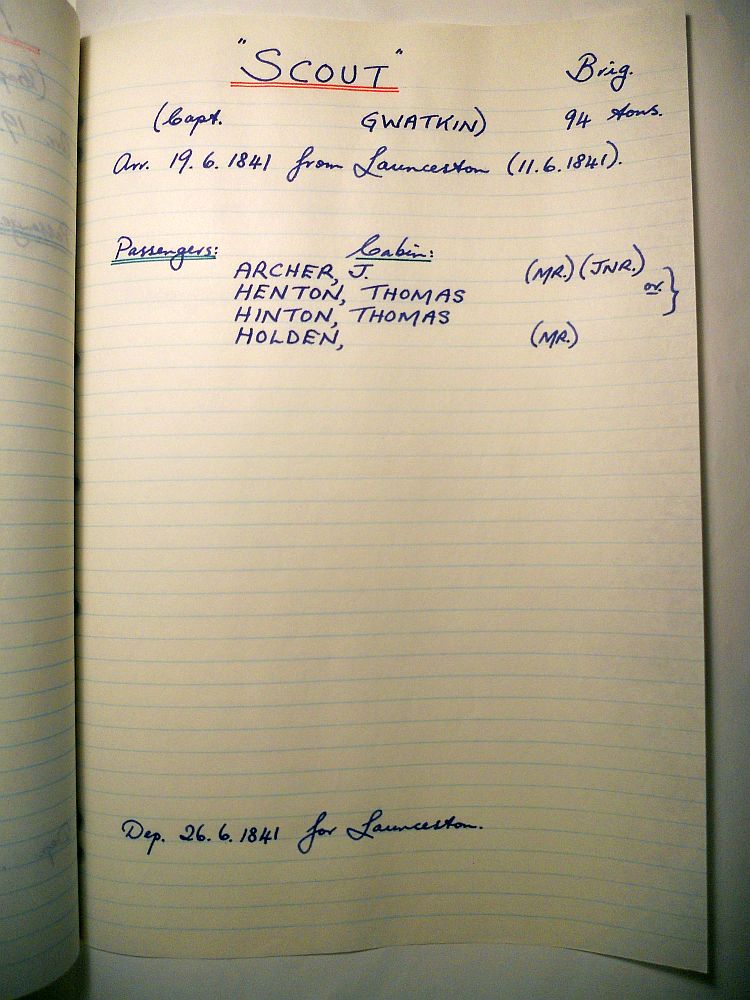 "SCOUT" Brig.
(Capt. GWATKIN) 94 tons.
Arr. 19.6.1841 from Launceston (11.6.1841).
Passengers: Cabin:
ARCHER, J. (MR.) (JNR.)
HENTON, THOMAS or }
HINTON, THOMAS
HOLDEN, (MR.)
Dep. 26.6.1841 for Launceston.